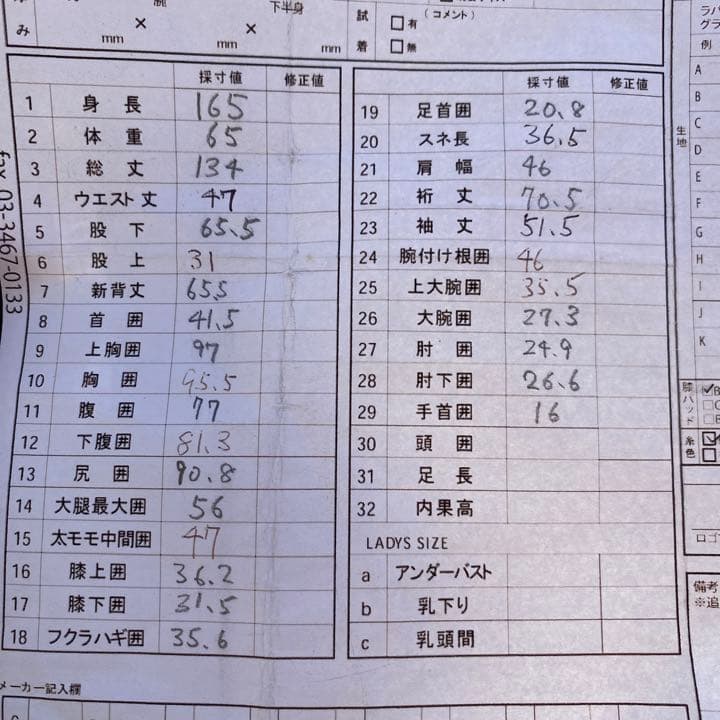 み
mm × × mm
下半身
試着
(コメント)
有
無
採寸値 修正値
1 身長 165
2 体重 65
3 総丈 134
4 ウエスト丈 47
5 股下 65.5
6 股上 31
7 新背丈 65.5
8 首囲 41.5
9 上胸囲 97
10 胸囲 95.5
11 腹囲 77
12 下腹囲 81.3
13 尻囲 90.8
14 大腿最大囲 56
15 太モモ中間囲 47
16 膝上囲 36.2
17 膝下囲 31.5
18 フクラハギ囲 35.6
採寸値 修正値
19 足首囲 20.8
20 スネ長 36.5
21 肩幅 46
22 裄丈 70.5
23 袖丈 51.5
24 腕付け根囲 46
25 上大腕囲 35.5
26 大腕囲 27.3
27 肘囲 24.9
28 肘下囲 26.6
29 手首囲 16
30 頭囲
31 足長
32 内果高
LADYS SIZE
a アンダーバスト
b 乳下り
c 乳頭間
メーカー記入欄
fax 03-3467-0133
生地
例
A
B
C
D
E
F
G
H
I
J
K
膝パッド
糸色
ロゴ
備考
※追